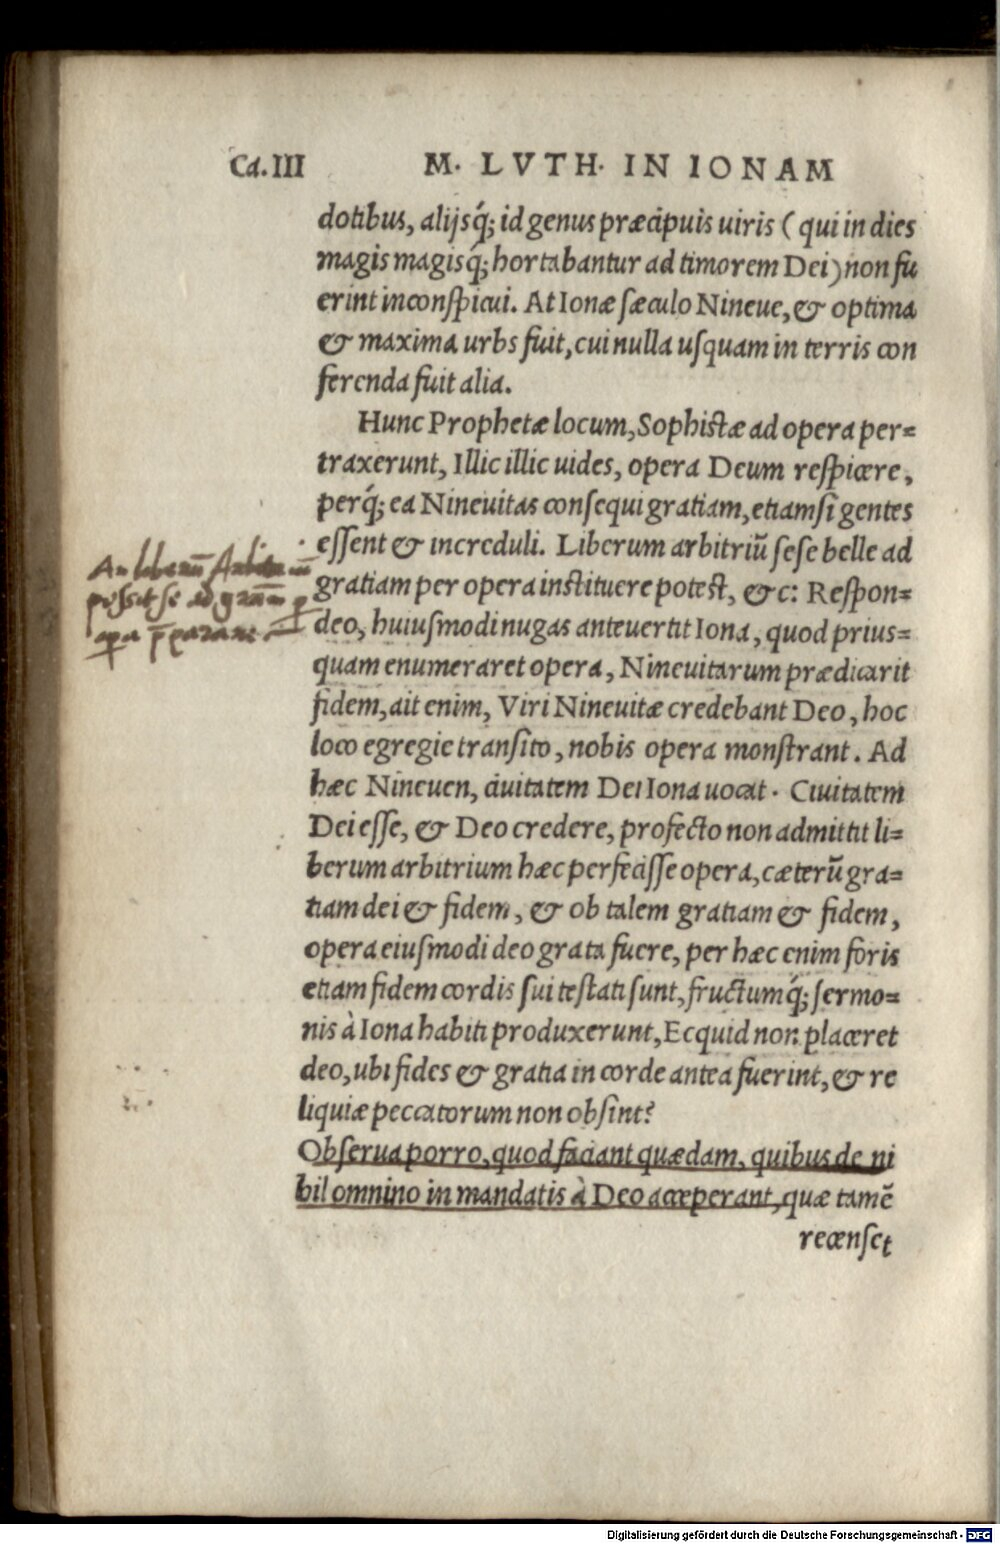 Ca. III M. LVTH. IN IONAM
dotibus, alijsq́; id genus præcipuis uiris ( qui in dies
magis magisq́; hortabantur ad timorem Dei) non fu
erint inconspicui. At Ionæ sæculo Nineue, & optima
& maxima urbs fuit, cui nulla usquam in terris con
ferenda fuit alia.
Hunc Prophetæ locum, Sophistæ ad opera per=
traxerunt, Illic illic uides, opera Deum respicere,
perq́; ea Nineuitas consequi gratiam, etiamsi gentes
essent & increduli. Liberum arbitriū sese belle ad
gratiam per opera instituere potest, &c: Respon=
deo, huiusmodi nugas anteuertit Iona, quod prius=
quam enumeraret opera, Nineuitarum prædicarit
fidem, ait enim, Viri Nineuitæ credebant Deo, hoc
loco egregie transito, nobis opera monstrant. Ad
hæc Nineuen, ciuitatem Dei Iona uocat. Ciuitatem
Dei esse, & Deo credere, profecto non admittit li=
berum arbitrium hæc perfecisse opera, cæterū gra=
tiam dei & fidem, & ob talem gratiam & fidem,
opera eiusmodi deo grata fuere, per hæc enim foris
etiam fidem cordis sui testati sunt, fructumq́; sermo=
nis à Iona habiti produxerunt, Ecquid non placeret
deo, ubi fides & gratia in corde antea fuerint, & re
liquiæ peccatorum non obsint?
Obserua porro, quod faciant quædam, quibus de ni
hil omnino in mandatis à Deo acceperant, quæ tamē
recenset
An liberū Arbitriū
possit se ad grām p
opera p̄parare
Digitalisierung gefördert durch die Deutsche Forschungsgemeinschaft - DFG